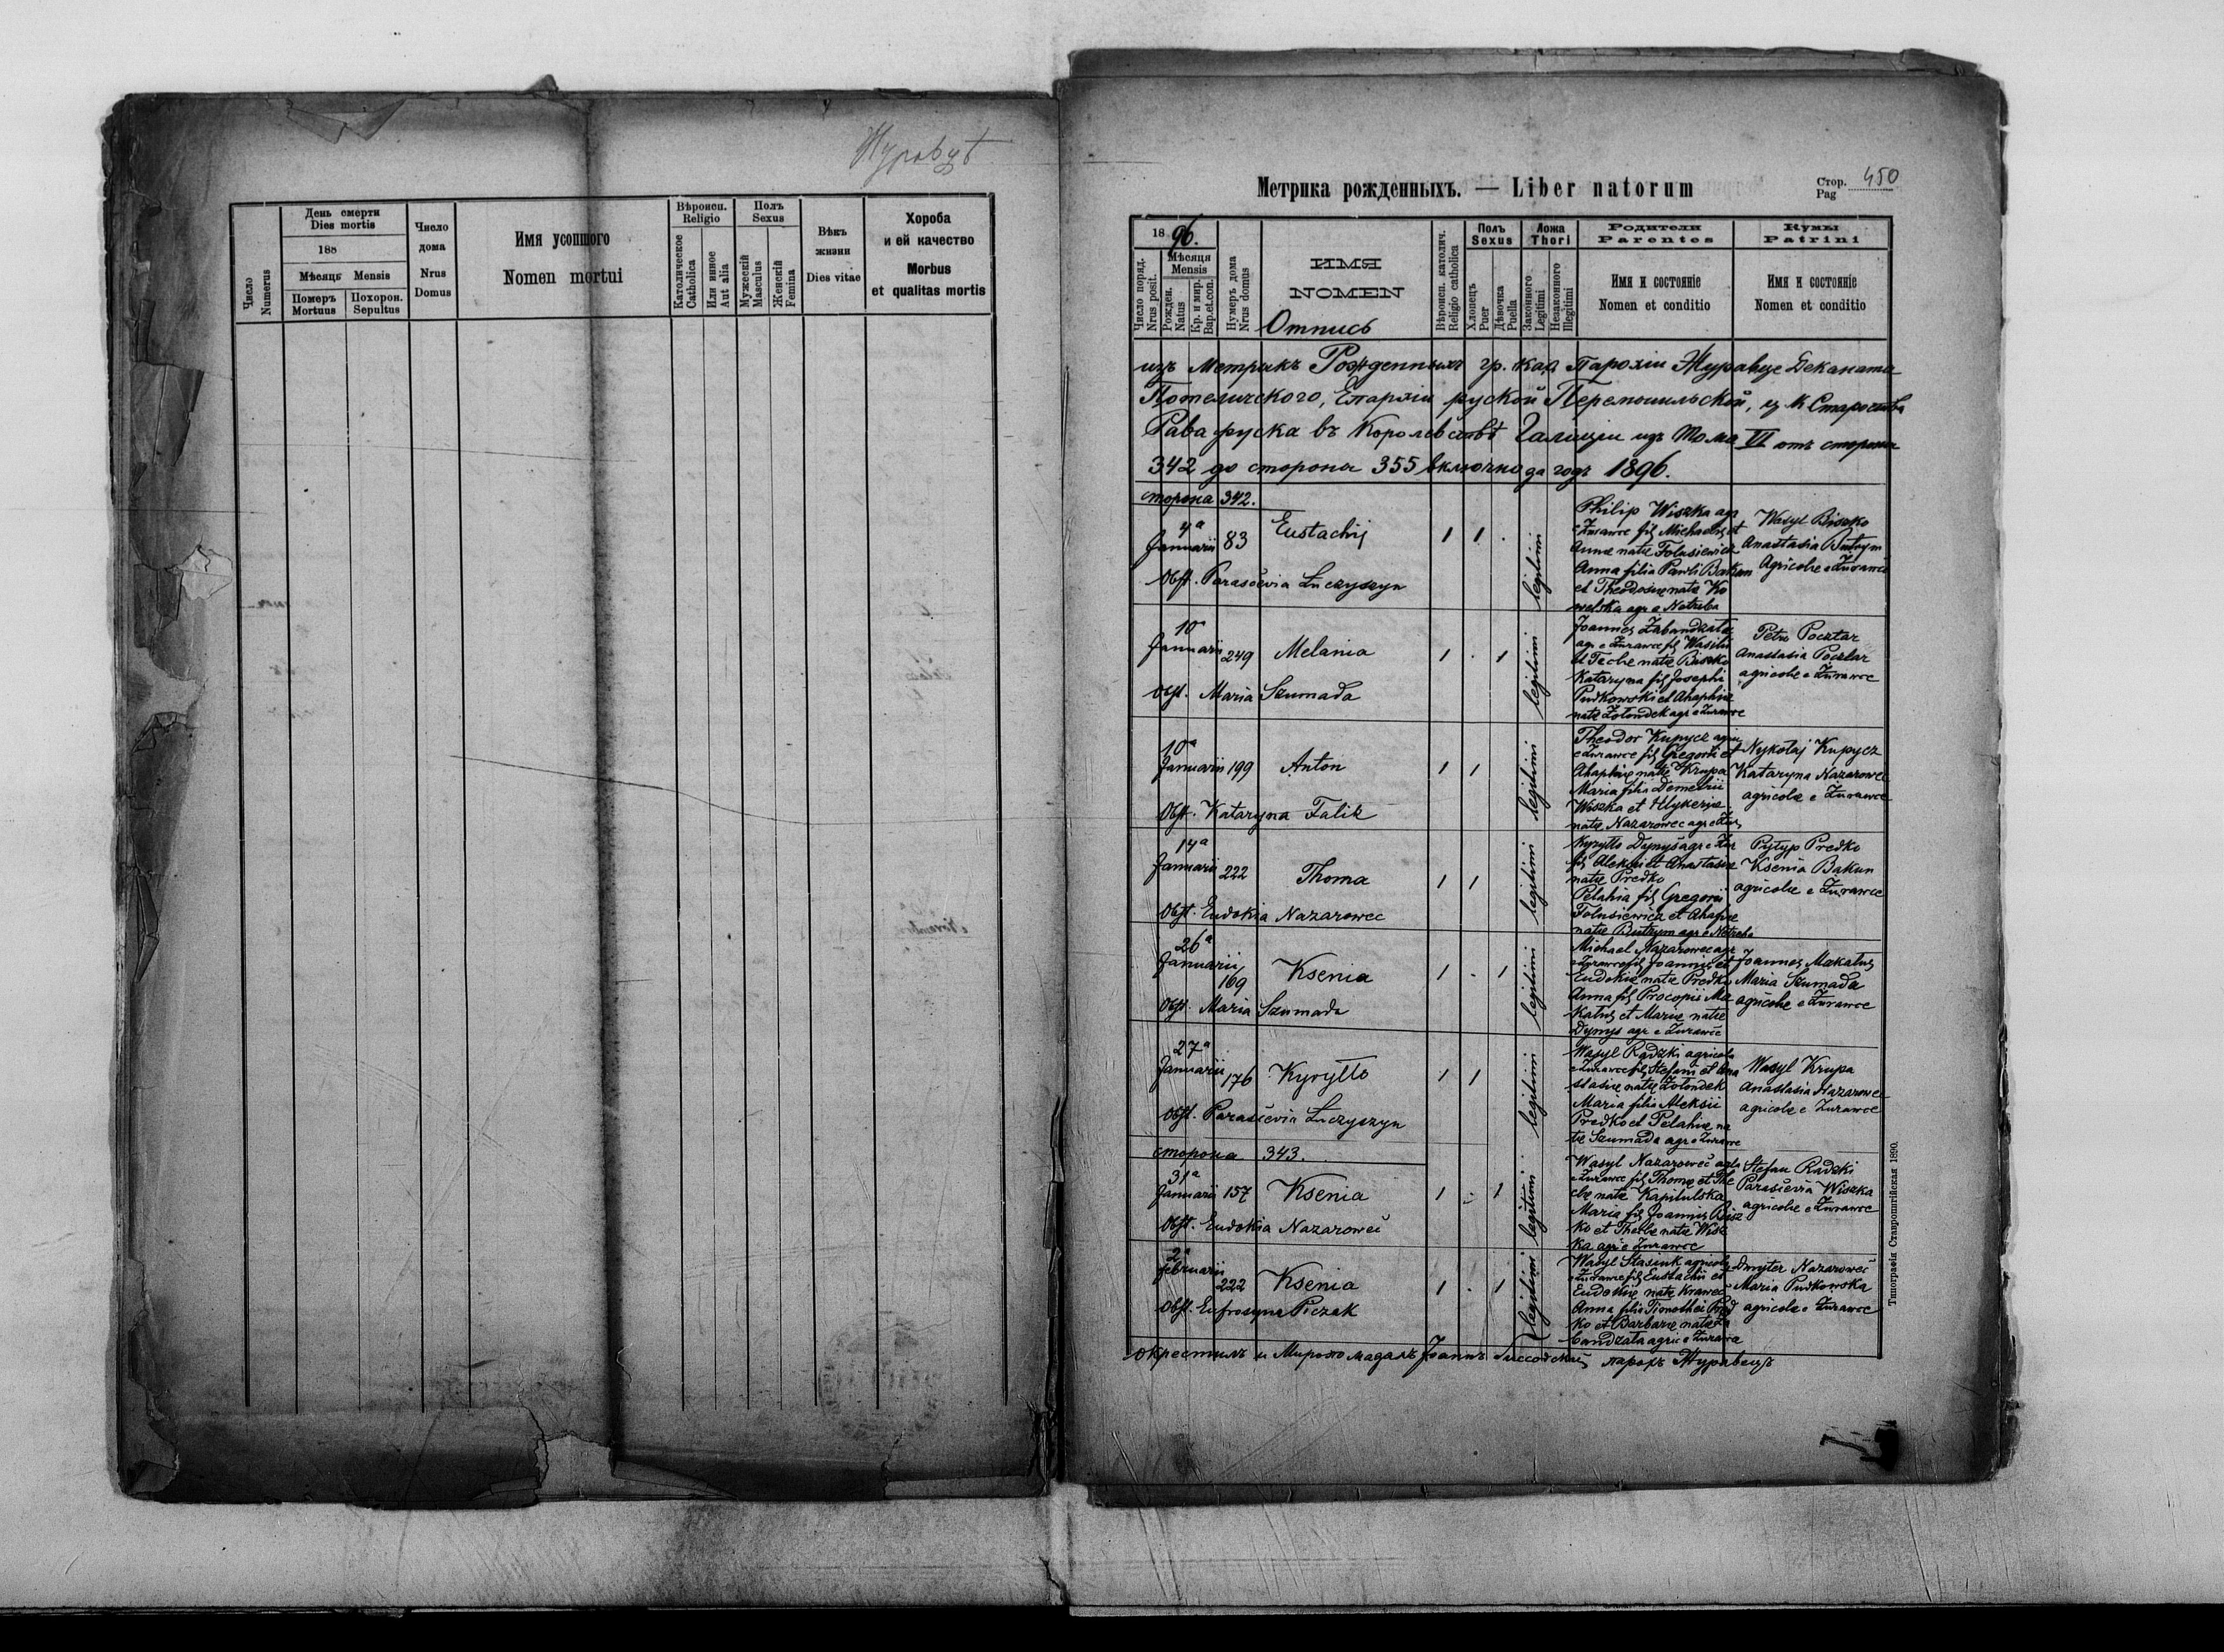 Журавцѣ
Число
Numerus
День смерти
Dies mortis
188
Мѣсяць Mensis
Померъ
Mortuus
Похорон.
Sepultus
Число
дома
Nrus
Domus
Имя усопшого
Nomen mortui
Вѣроисп.
Religio
Католическое
Catholica
Или инное
Aut alia
Полъ
Sexus
Мужескій
Masculus
Женскій
Femina
Вѣкъ
жизни
Dies vitae
Хороба
и ей качество
Morbus
et qualitas mortis
Метрика рожденныхъ. — Liber natorum
Стор. 450
Pag
1896.
Число поряд.
Nrus posit.
Мѣсяця
Mensis
Рожден.
Natus
Кр. и мир.
Bap.et.con.
Нумеръ дома
Nrus domus
ИМЯ
NOMEN
Отпись
Вѣроисп. католич.
Religio catholica
Полъ
Sexus
Хлопець
Puer
Дѣвочка
Puella
Ложа
Thori
Законного
Legitimi
Незаконного
Illegitimi
Родители
Parentes
Имя и состояніе
Nomen et conditio
Кумы
Patrini
Имя и состояніе
Nomen et conditio
изъ Метрикъ Рожденныхъ гр. кат. Парохіи Журавце Деканата
Потеличского, Епархіи руской Перемышльской, Староства
Рава руска въ Королевствѣ Галиціи изъ Тома VI отъ сторона
342 до сторона 355 включно за годъ 1896.
сторона 342.
4a Januarii 83 Eustachij 1 1 . legitimi
Philip Wiszka agr
e Żurawce fil Michaelis et
Annæ natæ Tolusiewicz
Anna filia Pawli Bakun
et Theodosiæ natæ Ko
walska agr e Netreba
Wasyl Biszko
Anastasia Butrym
Agricolæ e Żurawce
Obst. Parascevia Łuczyszyn
10a Januarii 249 Melania 1 . 1 legitimi
Joannes Zabandzała
agr e Żurawce fil Wasilii
et Teclæ natæ Biszko
Kataryna fil Josephi
Pudkowski et Ahaphiæ
natæ Żołondek agr e Żurawce
Petro Pocztar
Anastasia Pocztar
agricolæ e Żurawce
Obst. Maria Szumada
10a Januarii 199 Anton 1 1 legitimi
Theodor Kupycz agric
e Żurawce fil Gregorii et
Ahaphiæ natæ Krupa
Maria filia Demetrii
Wiszka et Hlykeriæ
natæ Nazarowec agr e Żur
Nykołaj Kupycz
Kataryna Nazarowec
agricolæ e Żurawce
Obst. Kataryna Falik
14a Januarii 222 Thoma 1 1 legitimi
Kyryłło Dynys agr e Żur
fil Aleksii et Anastasiæ
natæ Predko
Pelahia fil Gregorii
Tolusiewicz et Ahafiæ
natæ Butrym agr e Netreba
Pyłyp Predko
Ksenia Bakun
agricolæ e Żurawce
Obst. Eudokia Nazarowec
26a Januarii 169 Ksenia 1 . 1 legitimi
Michael Nazarowec agr
e Żurawce fil Joannis et
Eudokiæ natæ Predko
Anna fil Procopii Ma
katus et Mariæ natæ
Dynys agr e Żurawce
Joannes Makatus
Maria Szumada
agricolæ e Żurawce
Obst. Maria Szumada
27a Januarii 176 Kyryłło 1 1 legitimi
Wasyl Radzki agricola
e Żurawce fil Stefani et Ana
stasiæ natæ Żołondek
Maria filia Aleksii
Predko et Pelahiæ na
tæ Szumada agr e Żurawce
Wasyl Krupa
Anastasia Nazarowec
agricolæ e Żurawce
Obst. Parascevia Łuczyszyn
сторона 343.
31a Januarii 157 Ksenia 1 . 1 legitimi
Wasyl Nazarowec agr
e Żurawce fil Thomæ et The
clæ natæ Kapitulska
Maria fil Joannis Bisz
ko et Theclæ natæ Wisz
ka agr e Żurawce
Stefan Radzki
Parascevia Wiszka
agricolæ e Żurawce
Obst. Eudokia Nazarowec
2a februarii 222 Ksenia 1 . 1 legitimi
Wasyl Stasiuk agricola
e Żurawce fil Eustachii et
Eudokiæ natæ Krawec
Anna filia Timothei Pred
ko et Barbaræ natæ Za
bandzała agric e Żurawce
Dmyter Nazarowec
Maria Pudkowska
agricolæ e Żurawce
Obst. Eufrosyna Piczak
Окрестилъ и Миропомазалъ Іоаннъ парохъ Журавецъ
Типографія Ставропигійская 1890.